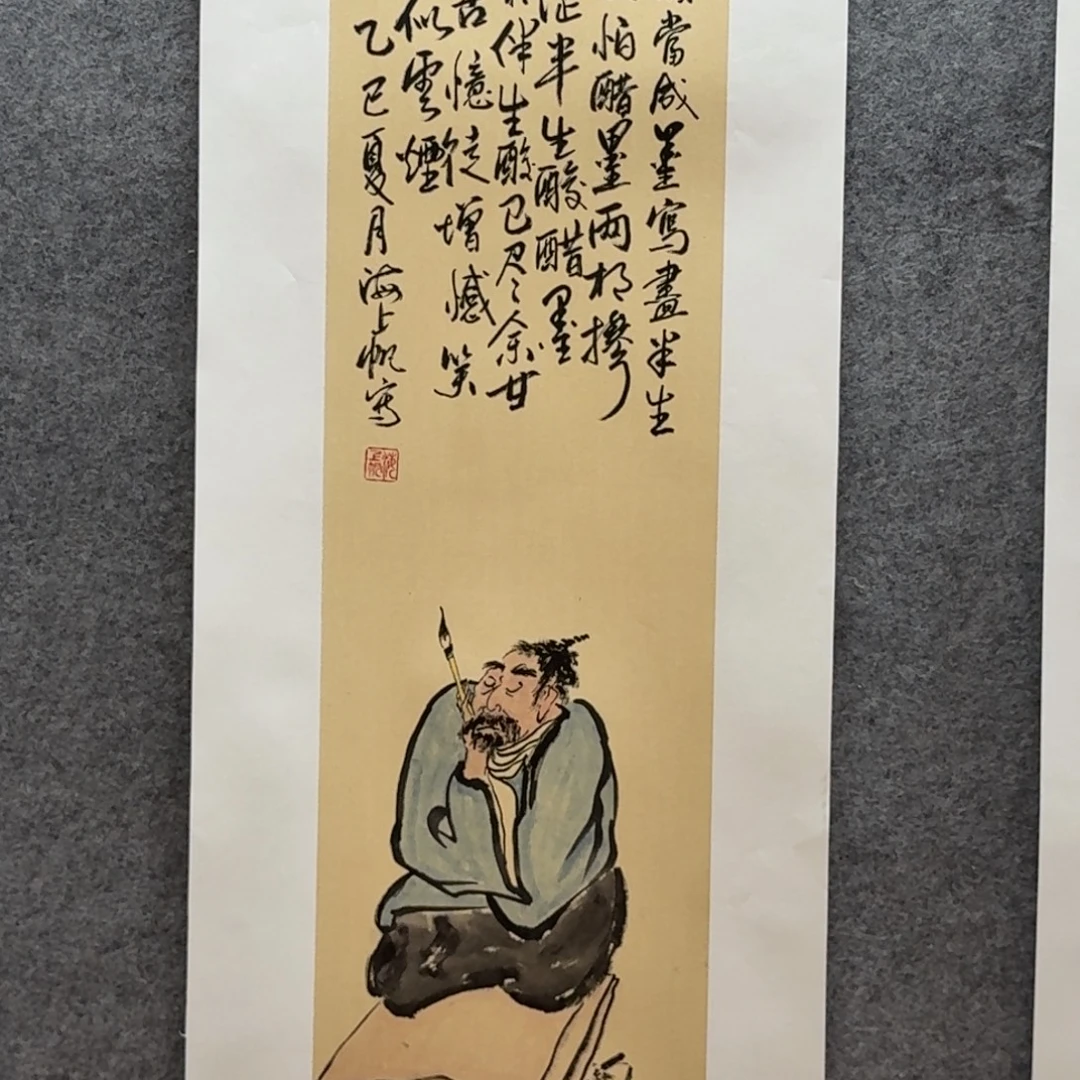 當成墨寫盡半生
怕醋墨兩相摻
半生酸醋墨
伴生酸已尽余甘
憶徒增憾笑
似雲煙
乙巳夏月海上帆寫